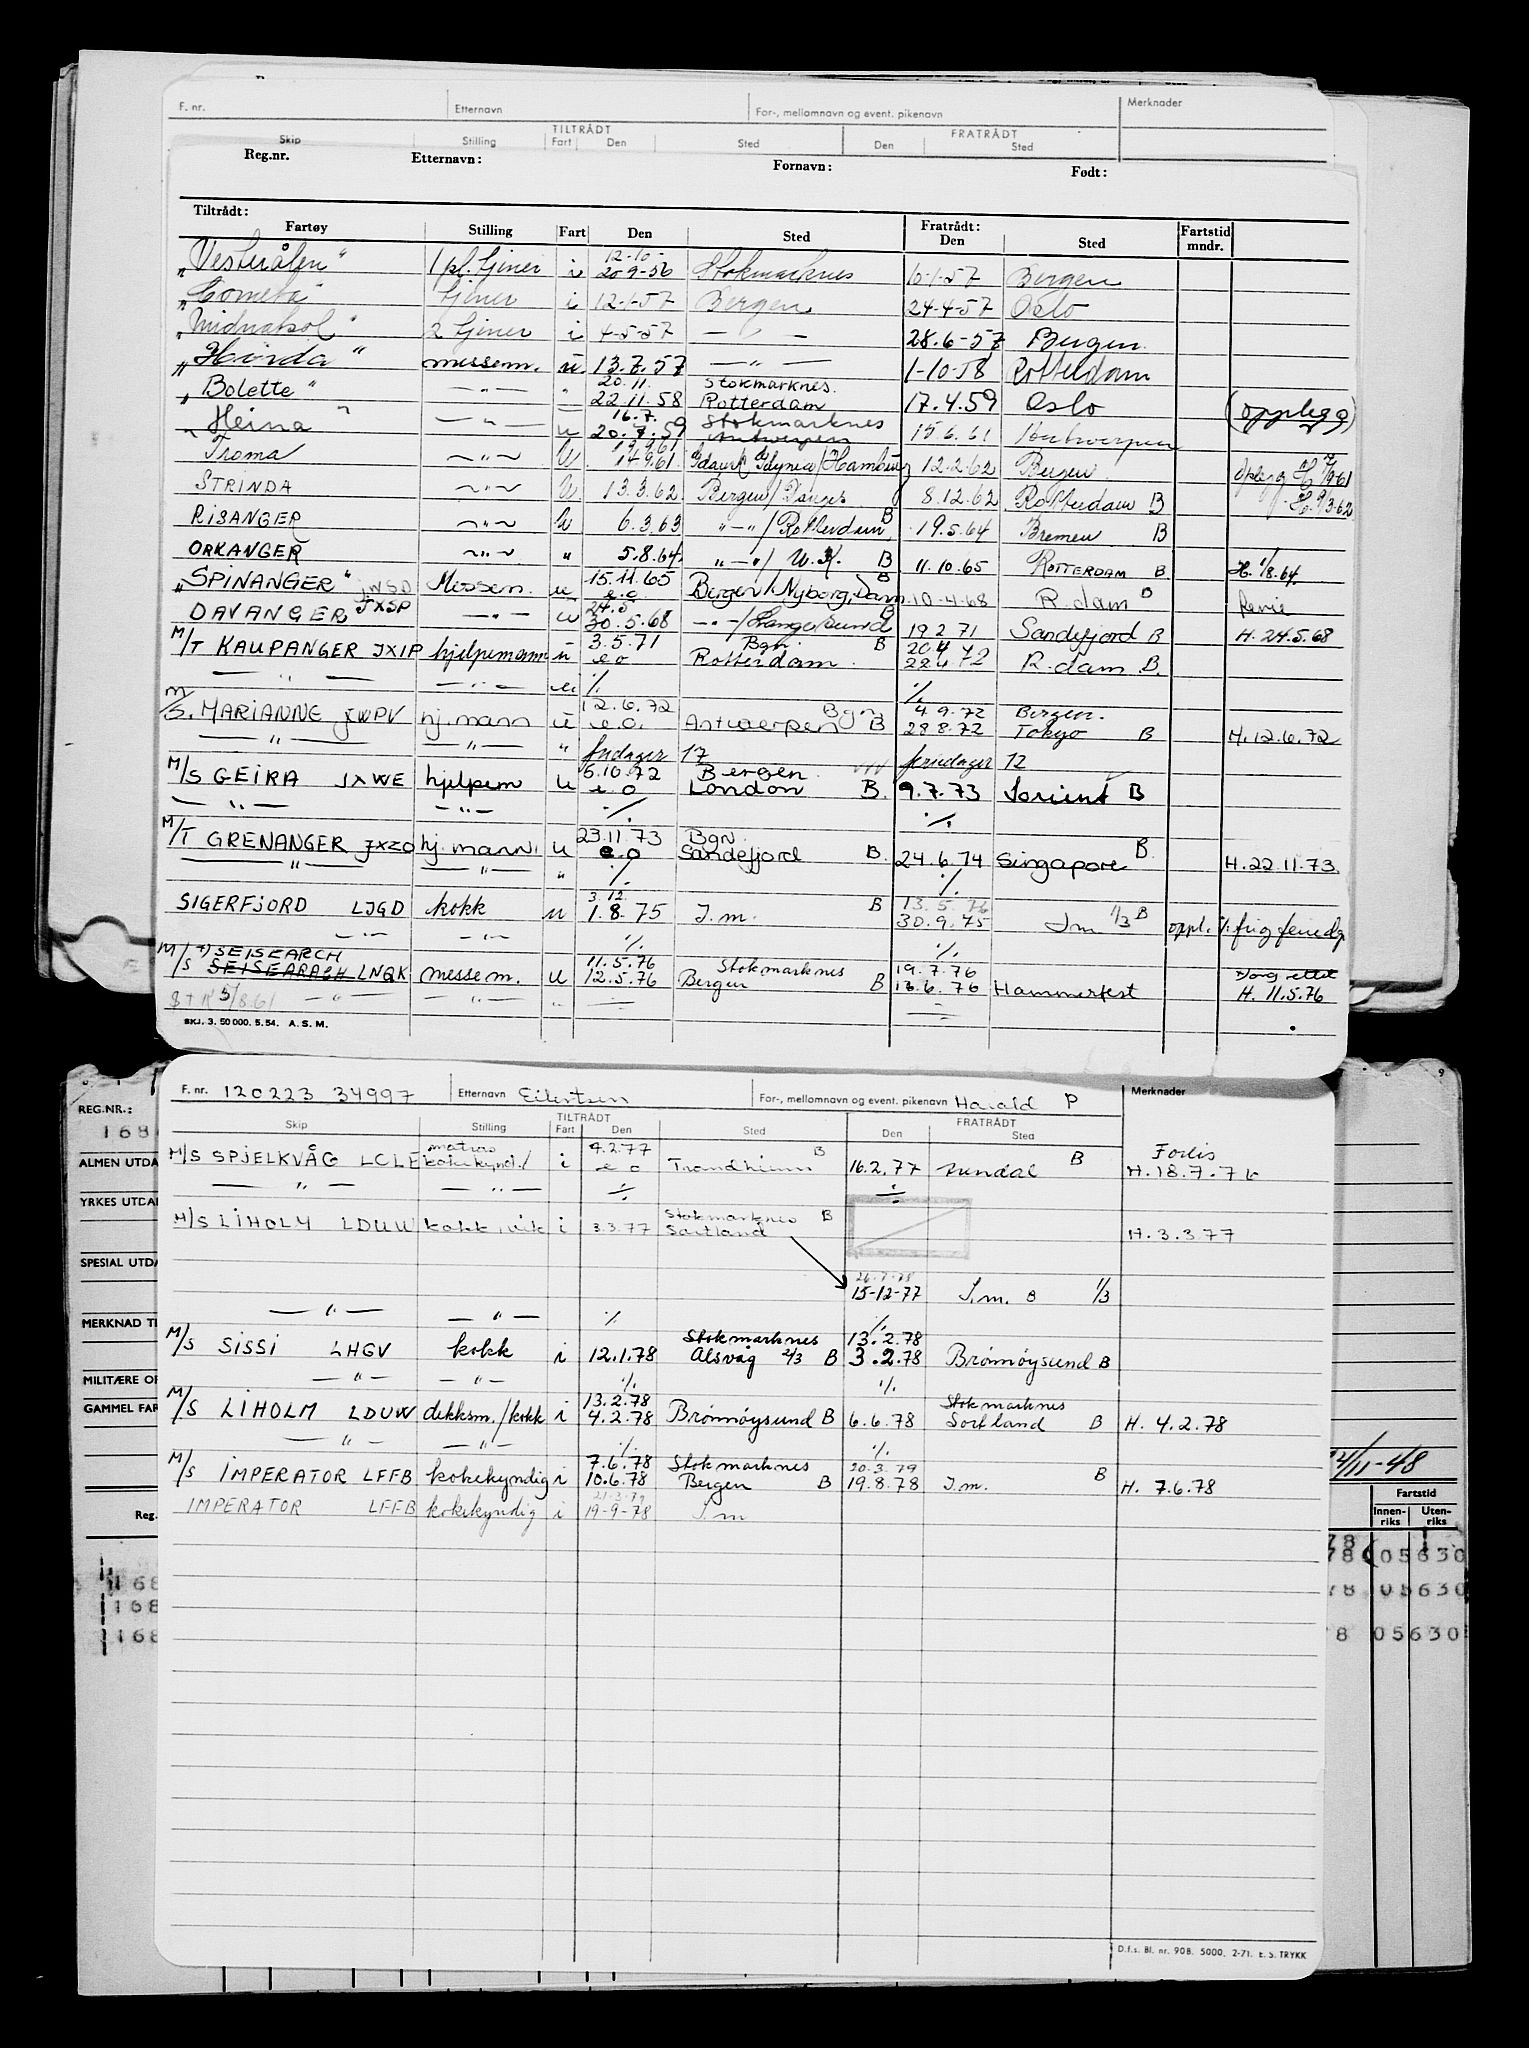 F. nr. Etternavn For-, mellomnavn og event. pikenavn Merknader
Skip Stilling TILTRÅDT Fart Den Sted Den FRATRÅDT Sted
Reg.nr. Etternavn: Fornavn: Født:
Tiltrådt: Fratrådt:
Fartøy Stilling Fart Den Sted Den Sted Fartstid mndr.
12-10-
„Vesterålen“ 1 pl. tjener i 20-9-56 Stokmarknes 10-1-57 Bergen
„Cometa“ tjener i 12-1-57 Bergen 24-4-57 Oslo
„Midnatsol“ 2 tjener i 4-5-57 — „ — 28.6-57 Bergen
„Horda“ messem. u. 13.7.57 — „ — 1-10-58 Rotterdam
20.11. Stokmarknes.
„Bolette“ — „ — „ 22.11.58 Rotterdam 17.4.59 Oslo (opplegg)
16.7. Stokmarknes
„Heina“ — „ — u 20.7.59 Antwerpen 15.6.61 Antwerpen
13.9.61
Troma — „ — U 14.9.61 Gdansk Gdynia/Hamburg 12.2.62 Bergen
STRINDA — „ — U 13.3.62 Bergen/ 8.12.62 Rotterdam B
RISANGER — „ — U 6.3.63 „ — „ /Rotterdam B 19.5.64 Bremen B
ORKANGER — „ — „ 5.8.64 „ — „ / U.K. B 11.10.65 ROTTERDAM B. H. 1/8.64
15.11.65
„SPINANGER“ JWSD Messem. u e.o. Bergen/Nyborg, Dam B 10-4-68 R.dam B ferie
24.5
DAVANGER JXSP — „ — u 30.5.68 — „ — /Langesund B 19 2 71 Sandefjord B H. 24.5.68
3.5.71 Bgn. B 20 4 72
M/T KAUPANGER JXIP hjelpemann u e o Rotterdam R.dam B.
— „ — — „ — u ·/. ·/.
12.6.72 Bgn 4 9.72 Bergen.
M/S. MARIANNE JWPV hj.mann u e.o. Antwerpen B 28 8.72 Tokyo B H. 12.6.72
— „ — — „ — „ fridager 17 feriedager 12
5.10.72 Bergen
M/S GEIRA JXWE hjelpem u e.o London B. 9.7.73 Lorient B
— „ — — „ — ·/. ·/.
23.11.73 Bgn.
M/T GRENANGER JXZO hj.mann. u e.o Sandefjord B. 24.6.74 Singapore B. H. 22.11.73.
— „ — — „ — „ ·/. ·/.
3.12. 13.5.76
SIGERFJORD LJGD kokk u 1.8.75 I.m. B 30.9.75 I m 1/3 B oppl.
— „ — — „ — ·/. ·/.
SEISEARCH 11.5.76 Stokmarknes 19.7.76
M/S SEISEARACH LNQK messem. u 12.5.76 Bergen B 18.6.76 Hammerfest H. 11.5.76
— „ — — „ —
SKJ. 3. 50 000. 5.54. A. S. M.
F. nr. 120223 34997 Etternavn Eilertsen For-, mellomnavn og event. pikenavn Harald P Merknader
REG.NR.:
168
Skip Stilling TILTRÅDT Fart Den Sted Den FRATRÅDT Sted
matros 4.2.77 B Forlis
M/S SPJELKVÅG LCLE kokekynd./ i e o Trondheim 16.2.77 Sundal B H. 18.7.76
ALMEN UTDA
— „ — — „ — ·/. ·/.
YRKES UTDA
Stokmarknes B
M/S LIHOLM LDUW kokk i 3.3.77 Sortland H. 3.3 77
SPESIAL UTDA
26.7.78
15-12-77 I.m. B 1/3
— „ — — „ — ·/. ·/.
MERKNAD TI
Stokmarknes 13.2.78
M/S SISSI LHGV kokk i 12.1.78 Alsvåg 2/3 B 3.2.78 Brønnøysund B
— „ — — „ — ·/. ·/.
MILITÆRE OP
13.2.78 Stokmarknes
M/S LIHOLM LDUW dekksm./kokk i 4.2.78 Brønnøysund B 6.6.78 Sortland B H. 4.2.78
GAMMEL FAR
— „ — — „ — ·/. ·/.
7.6.78 Stokmarknes 20.3.79
M/S IMPERATOR LFFB kokekyndig i 10.6.78 Bergen B 19.8.78 I.m. B H. 7.6.78
24/11-48
21.3.79
IMPERATOR LFFB kokekyndig i 19-9-78 I.m
Reg. Fartstid
Innenriks Utenriks
78
78 05630
168 78 05630
168
168 78 05630
D.f.s. Bl. nr. 90B. 5000. 2-71. E. S. TRYKK